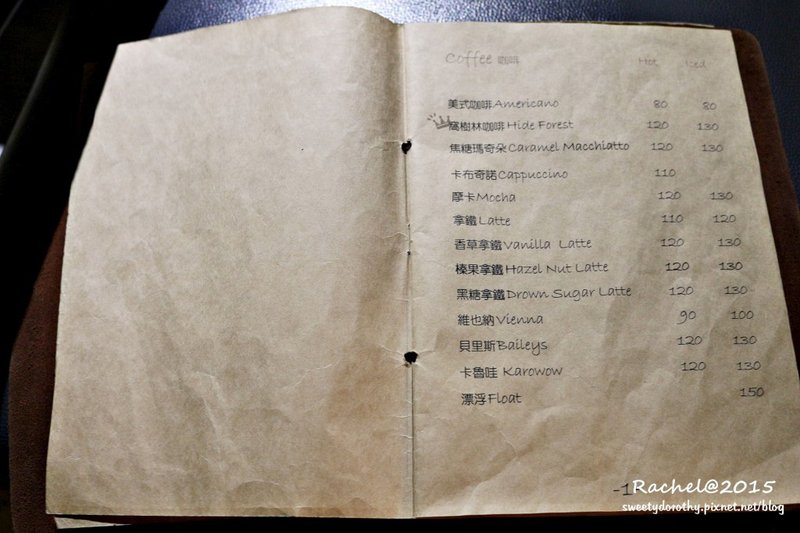 Coffee 咖啡 Hot Iced
美式咖啡Americano 80 80
窩樹林咖啡Hide Forest 120 130
焦糖瑪奇朵Caramel Macchiatto 120 130
卡布奇諾Cappuccino 110
摩卡Mocha 120 130
拿鐵Latte 110 120
香草拿鐵Vanilla Latte 120 130
榛果拿鐵Hazel Nut Latte 120 130
黑糖拿鐵Drown Sugar Latte 120 130
維也納Vienna 90 100
貝里斯Baileys 120 130
卡魯哇 Karowow 120 130
漂浮Float 150
-1
Rachel@2015
sweetydorothy.pixnet.net/blog